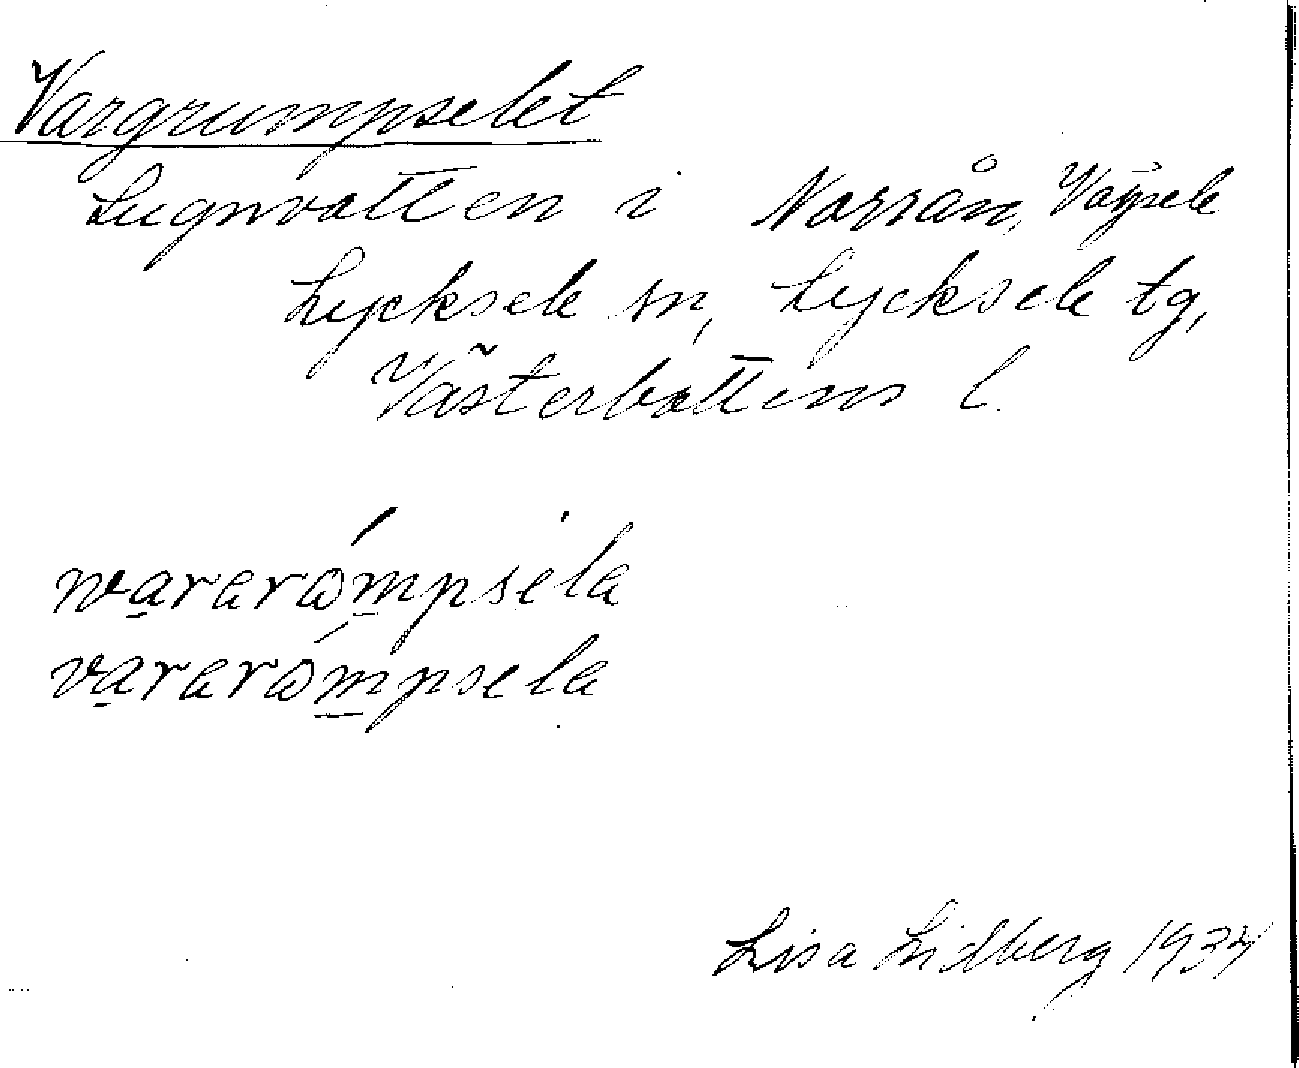 Vargrumpselet
Lugnvatten i Norrån, Vägsele
Lycksele sn, Lycksele tg,
Västerbottens l.
wararωmpsela
vararωmpsela
Lisa Lidberg 1934